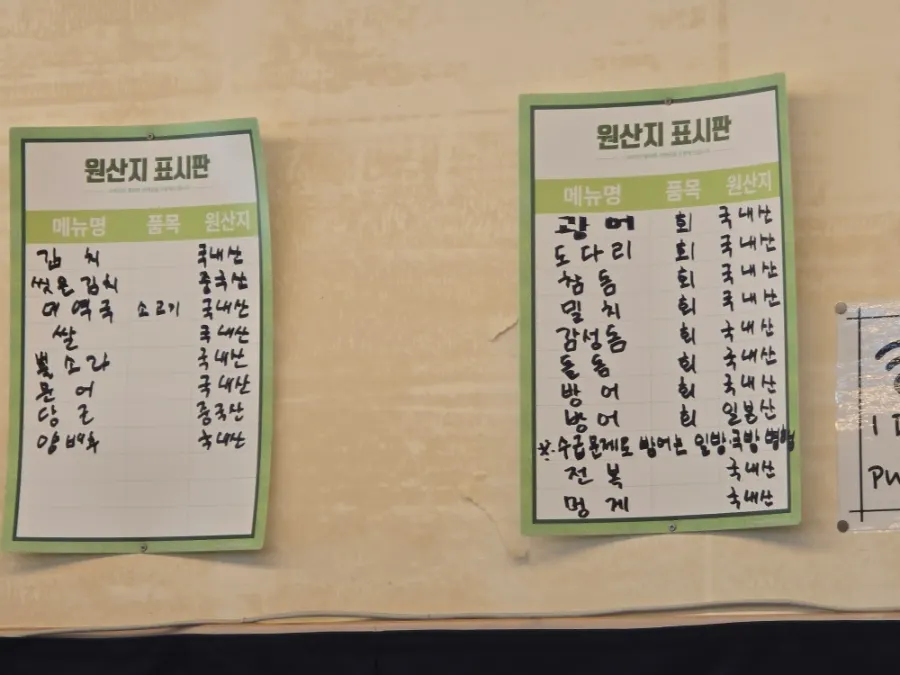 원산지 표시판
메뉴명 품목 원산지
김치 국내산
씻은김치 중국산
미역국 소고기 국내산
쌀 국내산
뿔소라 국내산
문어 국내산
당근 중국산
양배추 국내산
원산지 표시판
메뉴명 품목 원산지
광어 회 국내산
도다리 회 국내산
참돔 회 국내산
밀치 회 국내산
감성돔 회 국내산
돌돔 회 국내산
방어 회 국내산
방어 회 일본산
※수급문제로 방어는 일방,국방 병행
전복 국내산
멍게 국내산